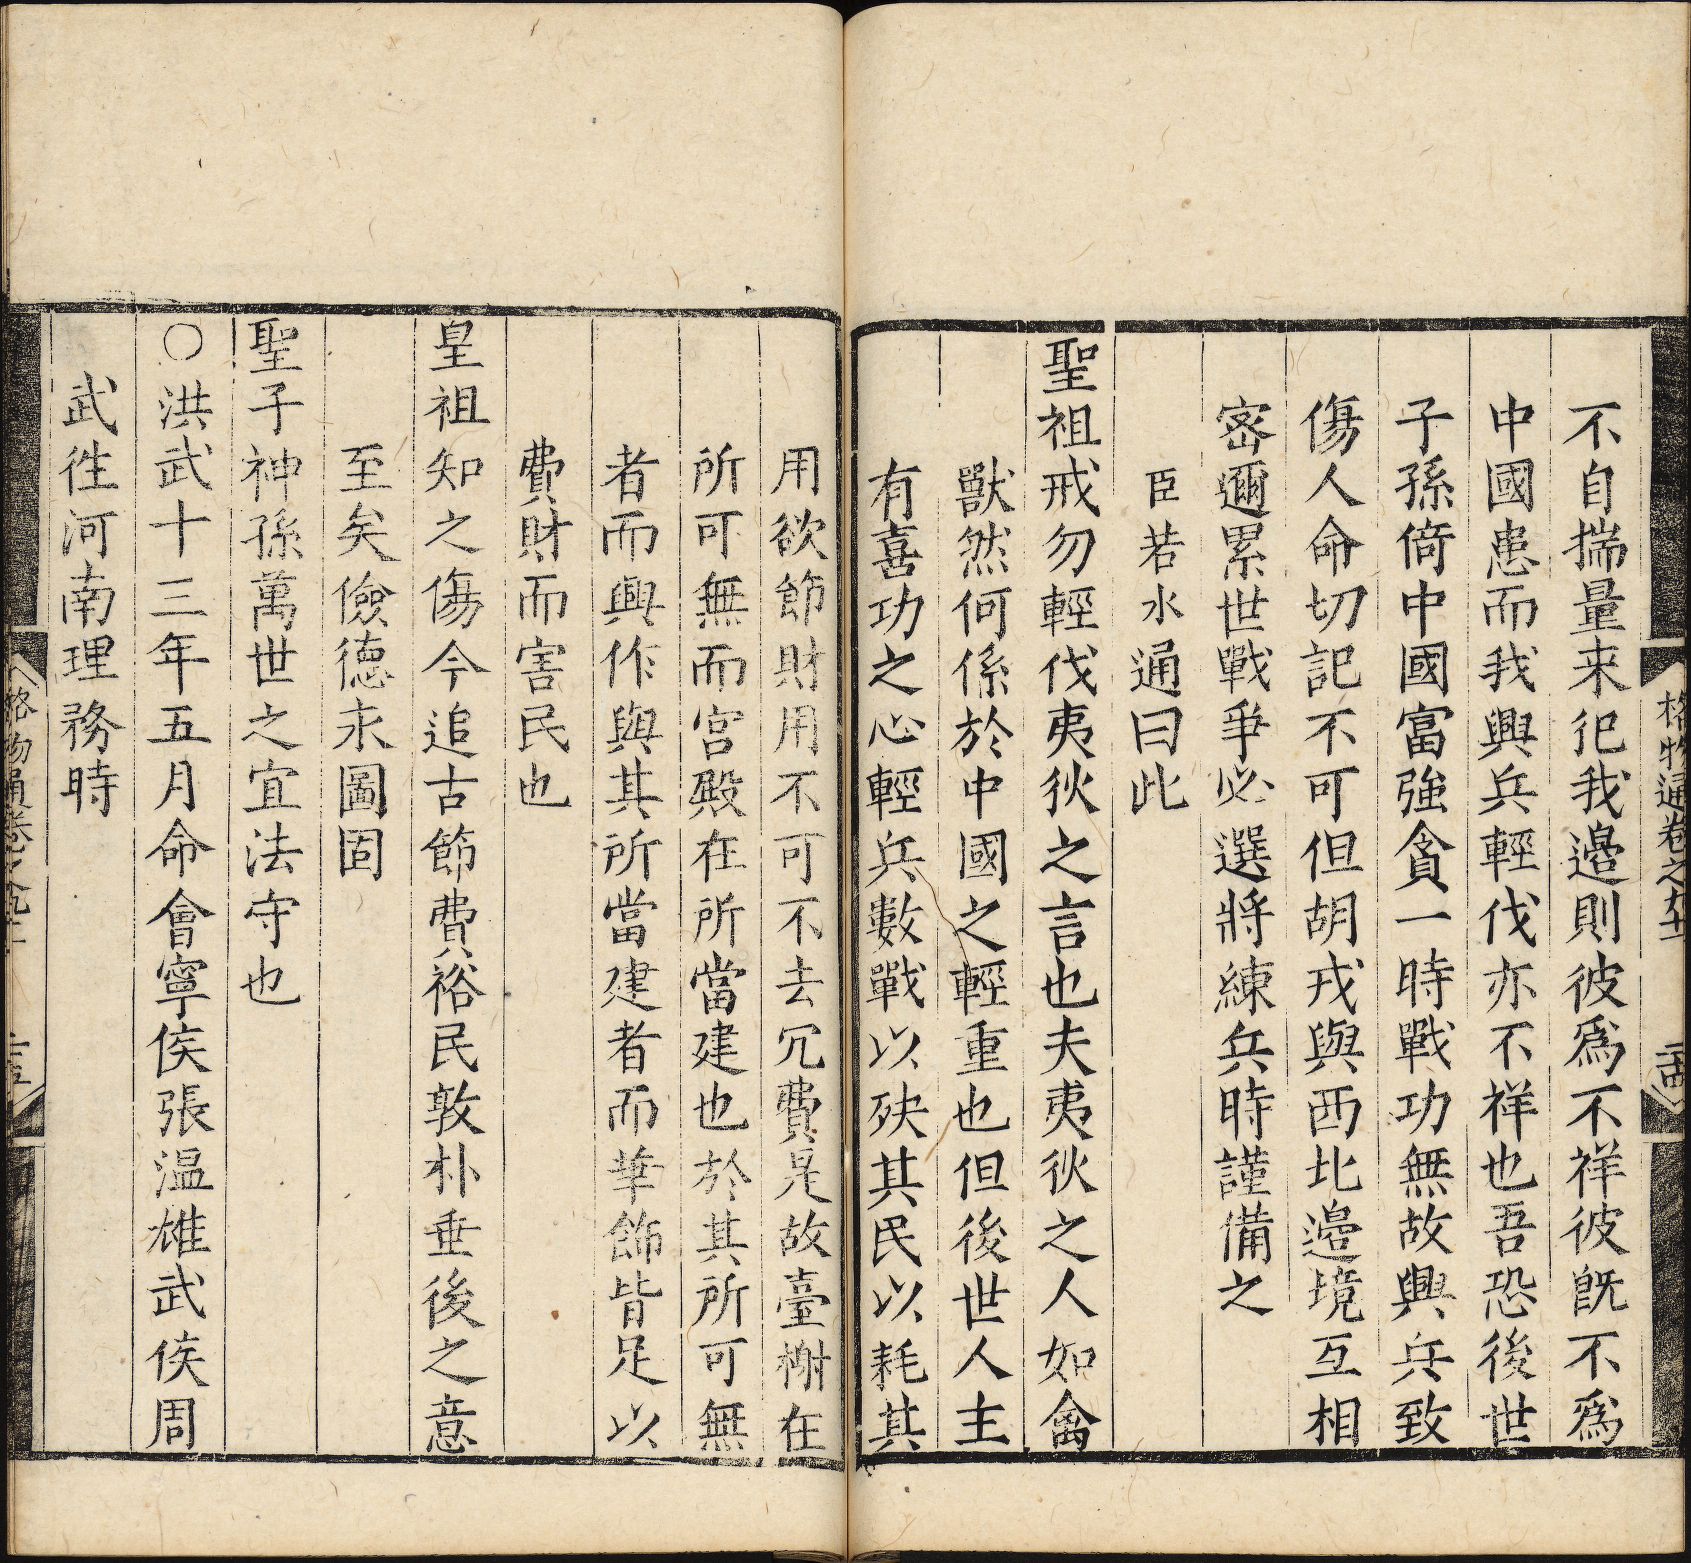 不自揣量来犯我邉則彼爲不祥彼旣不爲
中國患而我興兵輕伐亦不祥也吾恐後世
子孫倚中國富強貪一時戰功無故興兵致
傷人命切記不可但胡戎與西北邉境互相
密邇累世戰爭必選將練兵時謹備之
臣若水通曰此
聖祖戒勿輕伐夷狄之言也夫夷狄之人如禽
獸然何係於中國之輕重也但後世人主
有喜功之心輕兵數戰以殃其民以耗其
格物通卷之九十一
二十四
用欲節財用不可不去冗費是故臺榭在
所可無而宫殿在所當建也於其所可無
者而興作與其所當建者而華飾皆足以
費財而害民也
皇祖知之傷今追古節費裕民敦朴垂後之意
至矣儉德永圖固
聖子神孫萬世之宜法守也
○洪武十三年五月命會寧侯張温雄武侯周
武徃河南理務時
格物通卷之九十